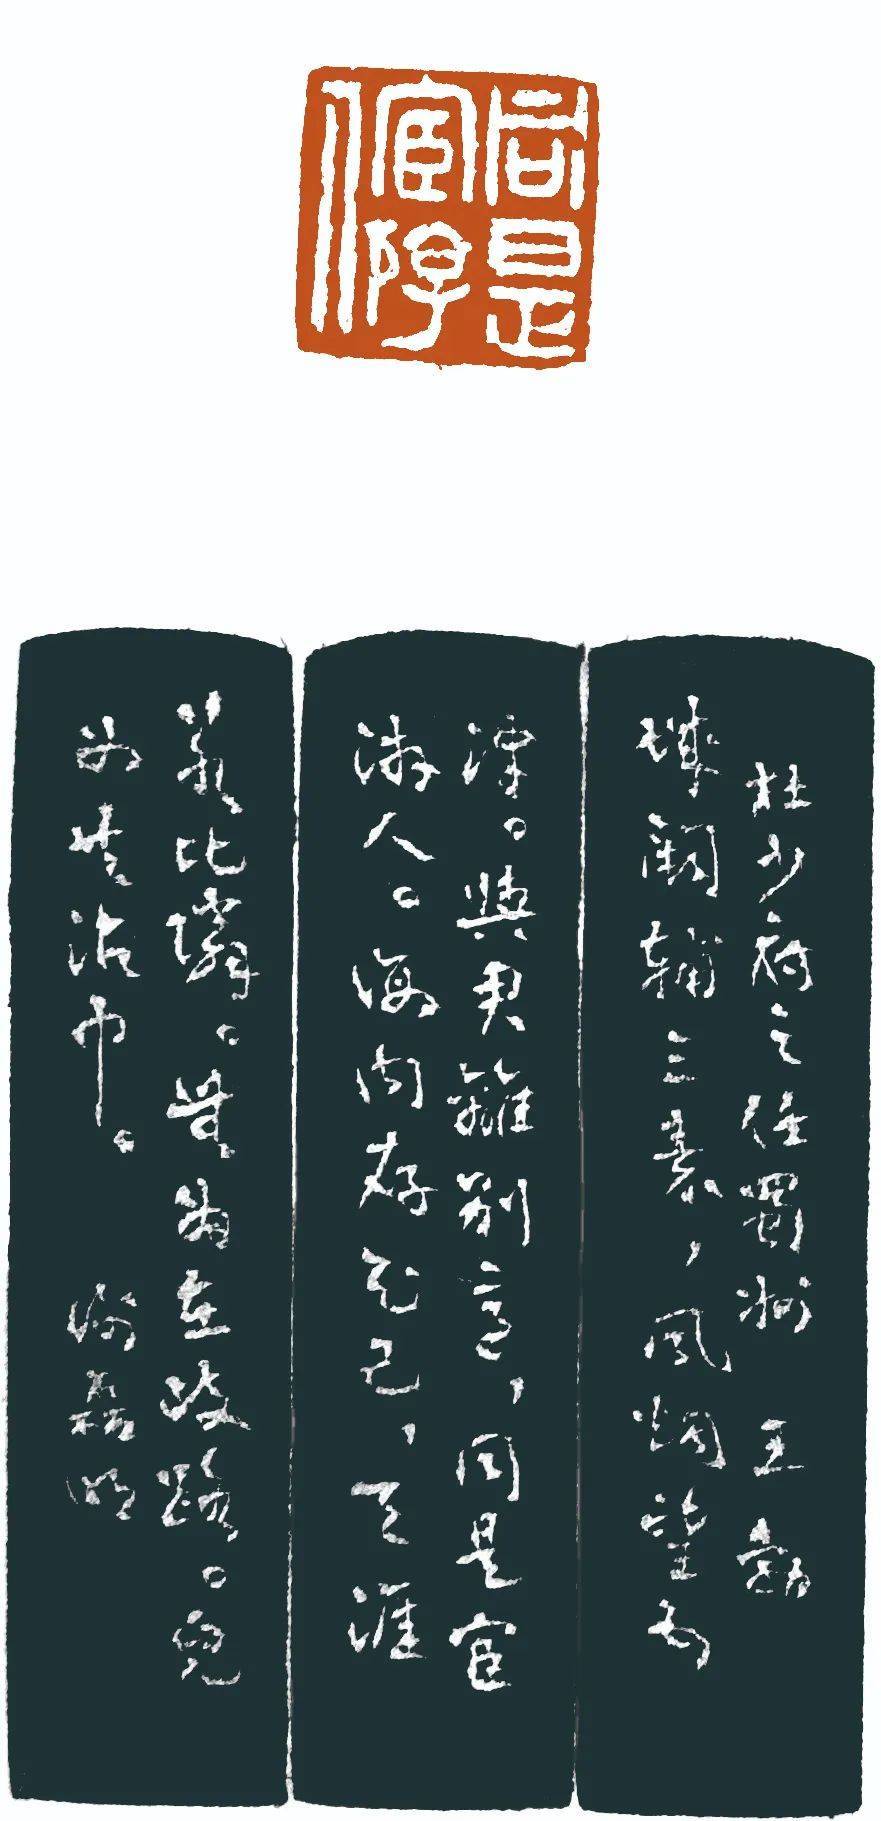 同是
宦游
人
杜少府之任蜀州 王勃
城闕輔三秦，風烟望五
津。與君離別意，同是宦
游人。海内存知己，天涯
若比鄰。無為在歧路。兒
女共沾巾。 謝磊明